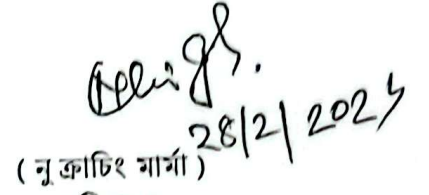 28/2/2024
(নু ক্রাচিং মার্মা)